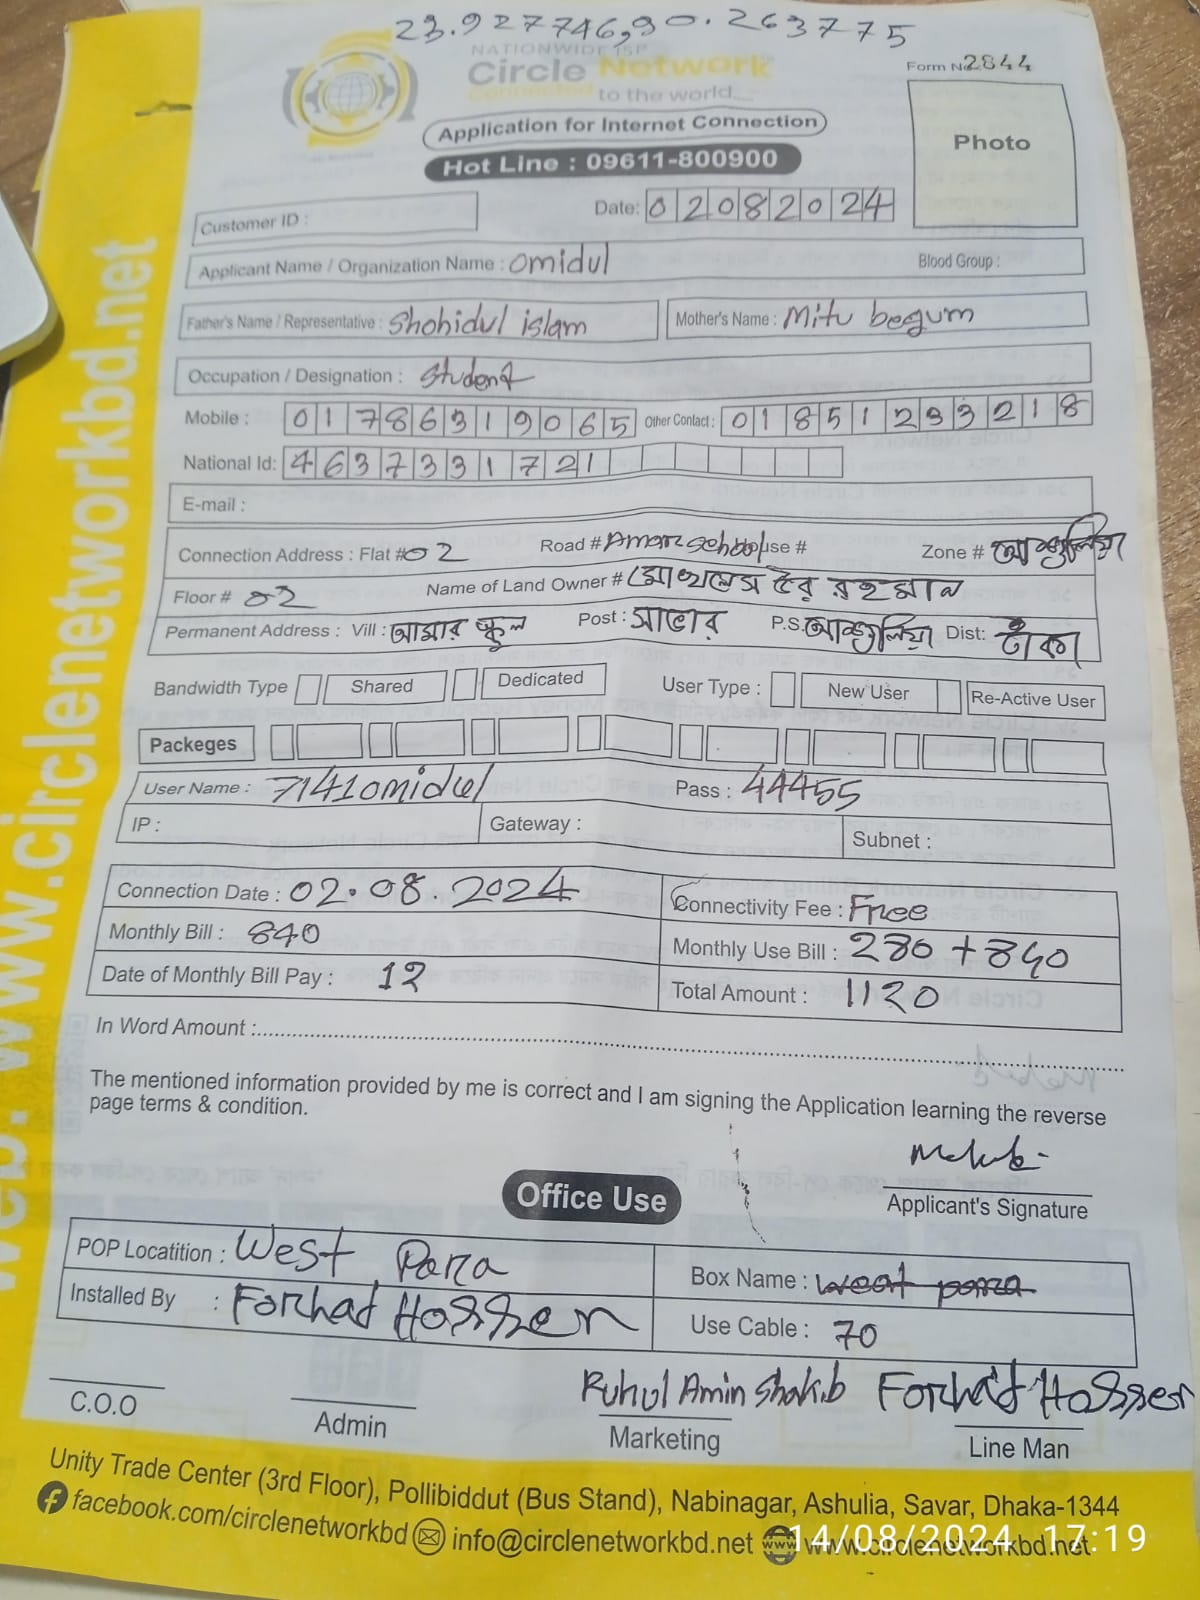 23.927746,90.263775
NATIONWIDE ISP
Circle Network
Connected to the world...
Form No 2844
Application for Internet Connection
Hot Line : 09611-800900
Photo
Customer ID :
Date: 02082024
Applicant Name / Organization Name : omidul Blood Group :
Father's Name / Representative : Shohidul islam Mother's Name : Mitu begum
Occupation / Designation : Student
Mobile : 01786319065 Other Contact : 01851293218
National Id: 4637331721
E-mail :
Connection Address : Flat # 02 Road # Amar school use # Zone # আশুলিয়া
Floor # 02 Name of Land Owner # রহমান
Permanent Address : Vill : আমার স্কুল Post : সাভার P.S. আশুলিয়া Dist: ঢাকা
Bandwidth Type Shared Dedicated User Type : New User Re-Active User
Packeges
User Name : 7141omidul Pass : 44455
IP : Gateway : Subnet :
Connection Date : 02.08.2024 Connectivity Fee : Free
Monthly Bill : 840 Monthly Use Bill : 280 + 840
Date of Monthly Bill Pay : 12 Total Amount : 1120
In Word Amount :
The mentioned information provided by me is correct and I am signing the Application learning the reverse
page terms & condition.
Applicant's Signature
Office Use
POP Locatition : West Para Box Name : west para
Installed By : Forhad Hossen Use Cable : 70
Ruhul Amin Shakib Forhad Hossen
C.O.O Admin Marketing Line Man
Unity Trade Center (3rd Floor), Pollibiddut (Bus Stand), Nabinagar, Ashulia, Savar, Dhaka-1344
facebook.com/circlenetworkbd info@circlenetworkbd.net www.circlenetworkbd.net
14/08/2024 17:19
web: www.circlenetworkbd.net